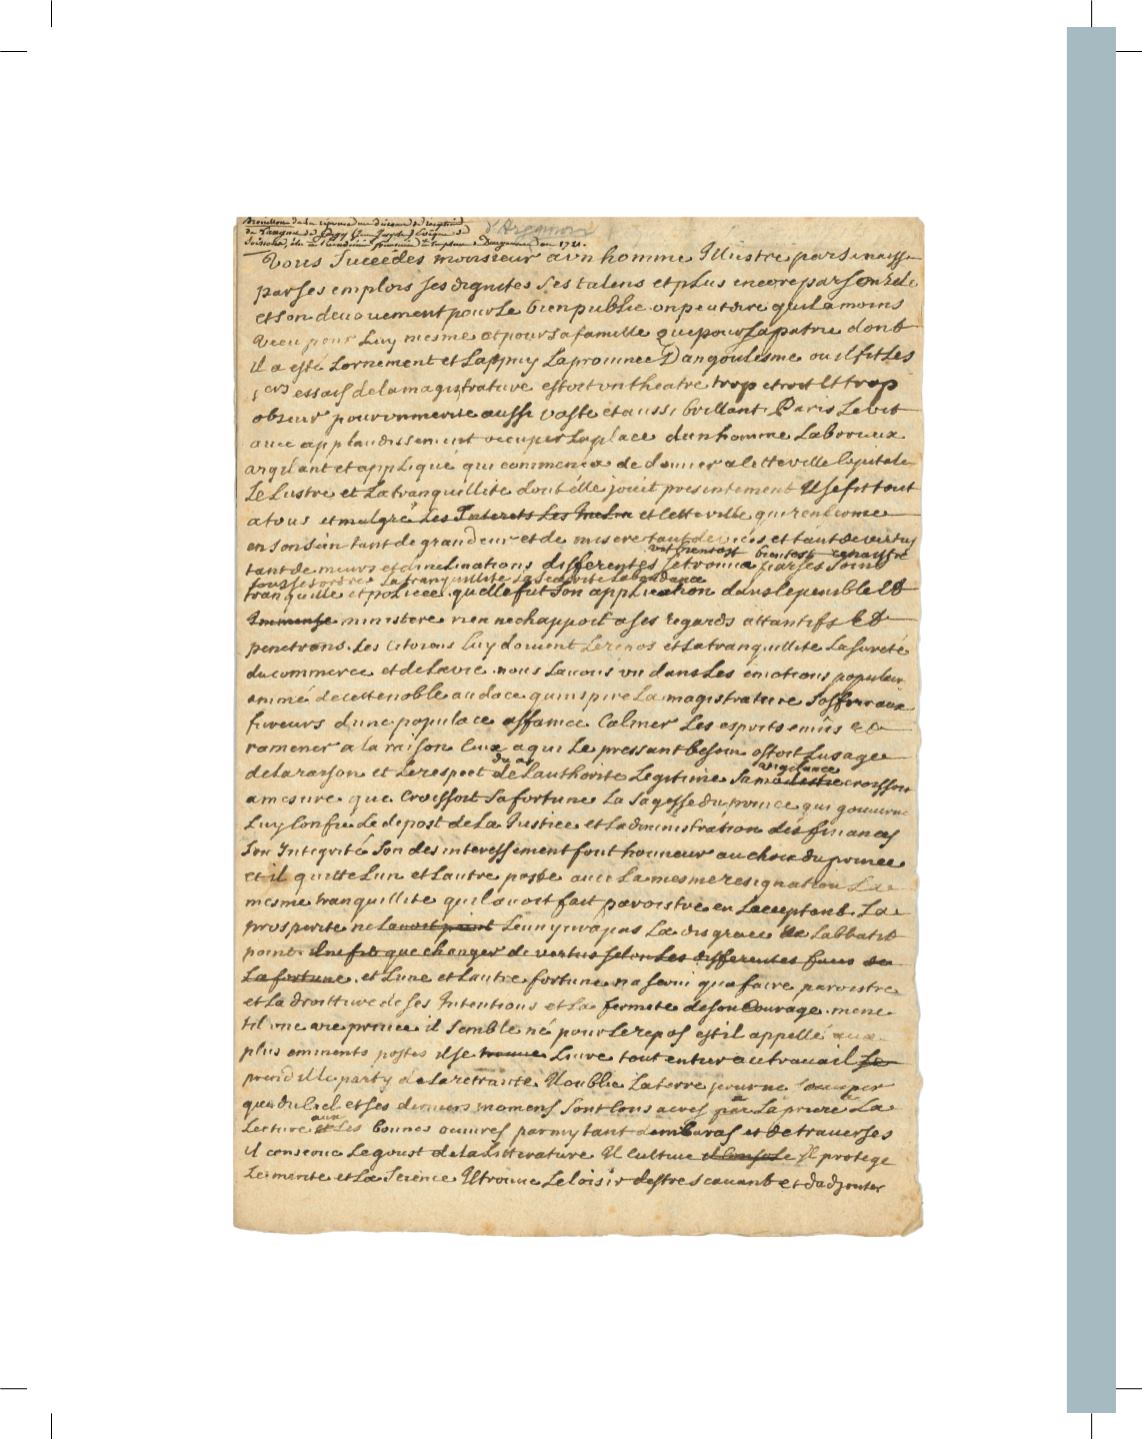 Brouillon de la reponse au discours de reception
de Languet de Gergy (Jean Joseph) Evêque de
Soissons, élu à l'académie françoise en la place d'Argenson en 1721.
d'Argenson
Vous Succédes monsieur a vn homme Illustre par sa naiss
par ses emplois ses dignites ses talens et plus encore par son zele
et son deuouement pour Le bien public on peut dire quil a moins
vecu pour Luy mesme et pour sa famille que pour sa patrie dont
il a esté Lornement et Lappuy La prouince Dangoulesme ou il fit Les
1ers essais de la magistrature estoit vn theatre trop etroit et trop
obscur pour vn merite aussi vaste et aussi brillant Paris Le vit
auec applaudissement occuper La place dun homme Laborieux
et appliqué qui commença de donner a cette ville Capitale
Le Lustre et La tranquillite dont elle jouit presentement Il se fit tout
a tous et malgré Les Interets Les et cette ville qui renferme
en son sein tant de grandeur et de misere tant de vices et tant de vertus
tant de meurs et dinclinations differentes se trouua par ses soins
vit bientost
tous ses ordres La tranquillité La Seureté Labondance
tranquille et policée quelle fut son application dans le penible et
Immense ministere rien nechappoit a ses regards attantifs et
penetrans. Les Citoiens Luy doiuent Le repos et La tranquillite La sureté
du commerce et de La vie nous Lauons vu dans Les emotions populair
animé de cette noble audace quinspire La magistrature Soffrir aux
fureurs dune populace affamée Calmer Les esprits emûs et
ramener a la raison Ceux a qui Le pressant besoin ostoit Lusage
de La raison et Le respect de Lauthorite Legitime Sa modestie croissoit
du a
vigilance
a mesure que Croissoit sa fortune La Sagesse du prince qui gouuerne
Luy Confie Le depost de La Justice et Ladministration des finances
Son Integrité Son desinteressement font honneur au choix du prince
et il quitte Lun et Lautre poste auec La mesme resignation La
mesme tranquillite quil auoit fait paroistre en Lacceptant. La
prosperite ne Lauoit point Lenyura pas La disgrace ne Labbatit
point il ne fit que changer de vertus selon Les differentes faces de
La fortune. et Lune et Lautre fortune na serui qua faire paroistre
et La droitture de ses Intentions et La fermeté de son Courage.
priuée il semble né pour Le repos est il appellé aux
plus eminents postes il se trouue Liure tout entier au trauail Se
prend il Le party de La retraite Il oublie La terre pour ne soccuper
que du Ciel et ses derniers momens Sont Consacres par La priere La
a
Lecture et Les bonnes œuures parmy tant dembaras et de trauerses
aux
il conserue Le goust de La Litterature Il Cultiue il Console Il protege
Le merite et La Science Il trouue Le loisir destre scauant et dadjouter